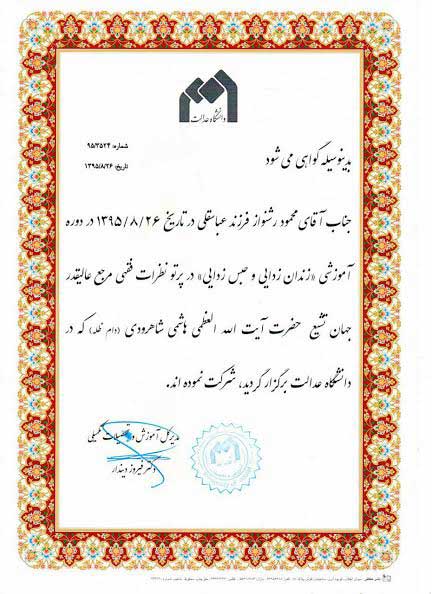 دانشگاه عدالت
شماره: ۹۵/۳۵۲۴
تاریخ: ۱۳۹۵/۸/۲۶
بدینوسیله گواهی می شود
جناب آقای محمود رشنواز فرزند عباسقلی در تاریخ ۱۳۹۵/۸/۲۶ در دوره
آموزشی «زندان زدایی و حبس زدایی» در پرتو نظرات فقهی مرجع عالیقدر
جهان تشیع حضرت آیت الله العظمی هاشمی شاهرودی (دام ظله) که در
دانشگاه عدالت برگزار گردید، شرکت نموده اند.
مدیر کل آموزش و تحصیلات تکمیلی
دکتر فیروز دیندار